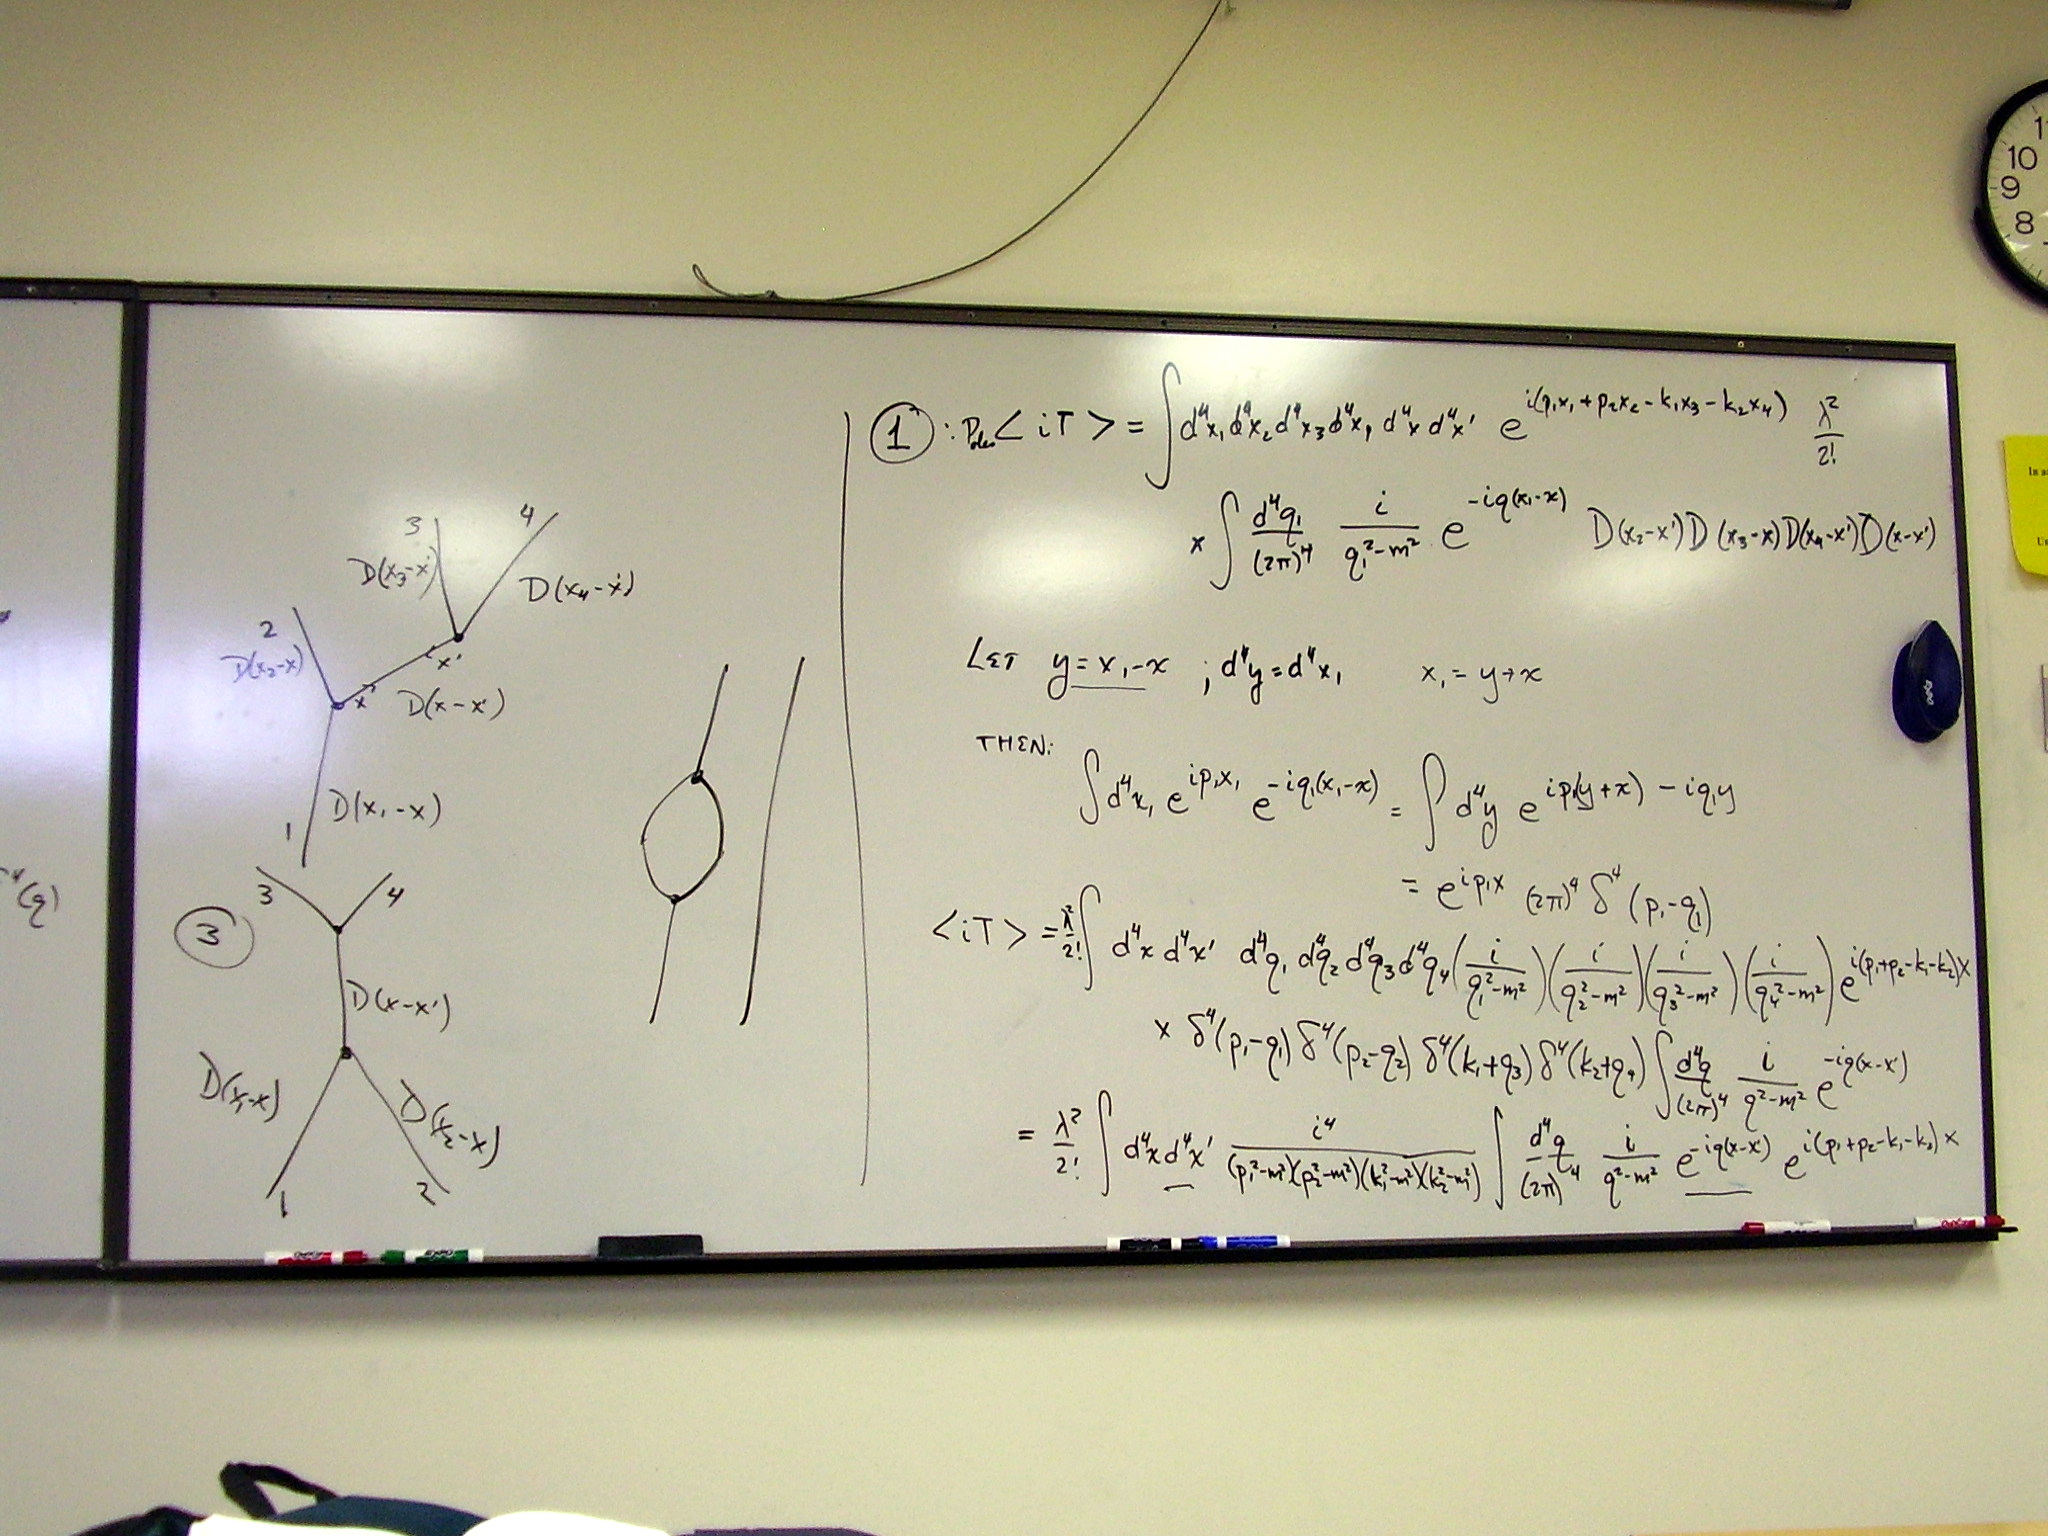 ⁴(q)
3
4
D(x₃-x')
D(x₄-x')
2
D(x₂-x)
x'
x
D(x-x')
D(x₁-x)
1
③
3
4
D(x-x')
D(x₁-x)
D(x₂-x)
1
2
① : Poles <iT> = ∫ d⁴x₁ d⁴x₂ d⁴x₃ d⁴x₄ d⁴x d⁴x' e^{i(p₁x₁ + p₂x₂ - k₁x₃ - k₂x₄)} λ²/2!
× ∫ d⁴q₁/(2π)⁴ i/(q₁²-m²) e^{-iq(x₁-x)} D(x₂-x') D(x₃-x) D(x₄-x') D(x-x')
LET y = x₁-x ; d⁴y = d⁴x₁ x₁ = y+x
THEN:
∫ d⁴x₁ e^{ip₁x₁} e^{-iq₁(x₁-x)} = ∫ d⁴y e^{ip₁(y+x) - iq₁y}
= e^{ip₁x} (2π)⁴ δ⁴(p₁-q₁)
<iT> = λ²/2! ∫ d⁴x d⁴x' d⁴q₁ d⁴q₂ d⁴q₃ d⁴q₄ (i/(q₁²-m²)) (i/(q₂²-m²)) (i/(q₃²-m²)) (i/(q₄²-m²)) e^{i(p₁+p₂-k₁-k₂)x}
× δ⁴(p₁-q₁) δ⁴(p₂-q₂) δ⁴(k₁+q₃) δ⁴(k₂+q₄) ∫ d⁴q/(2π)⁴ i/(q²-m²) e^{-iq(x-x')}
= λ²/2! ∫ d⁴x d⁴x' i⁴/((p₁²-m²)(p₂²-m²)(k₁²-m²)(k₂²-m²)) ∫ d⁴q/(2π)⁴ i/(q²-m²) e^{-iq(x-x')} e^{i(p₁+p₂-k₁-k₂)x}
10
9
8